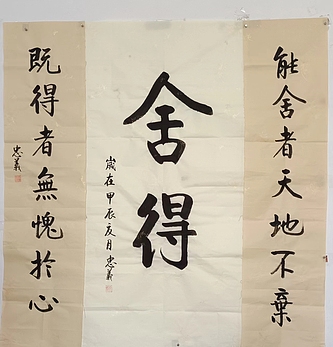 能舍者天地不棄
舍得
歲在甲辰亥月忠義
既得者無愧於心
忠義